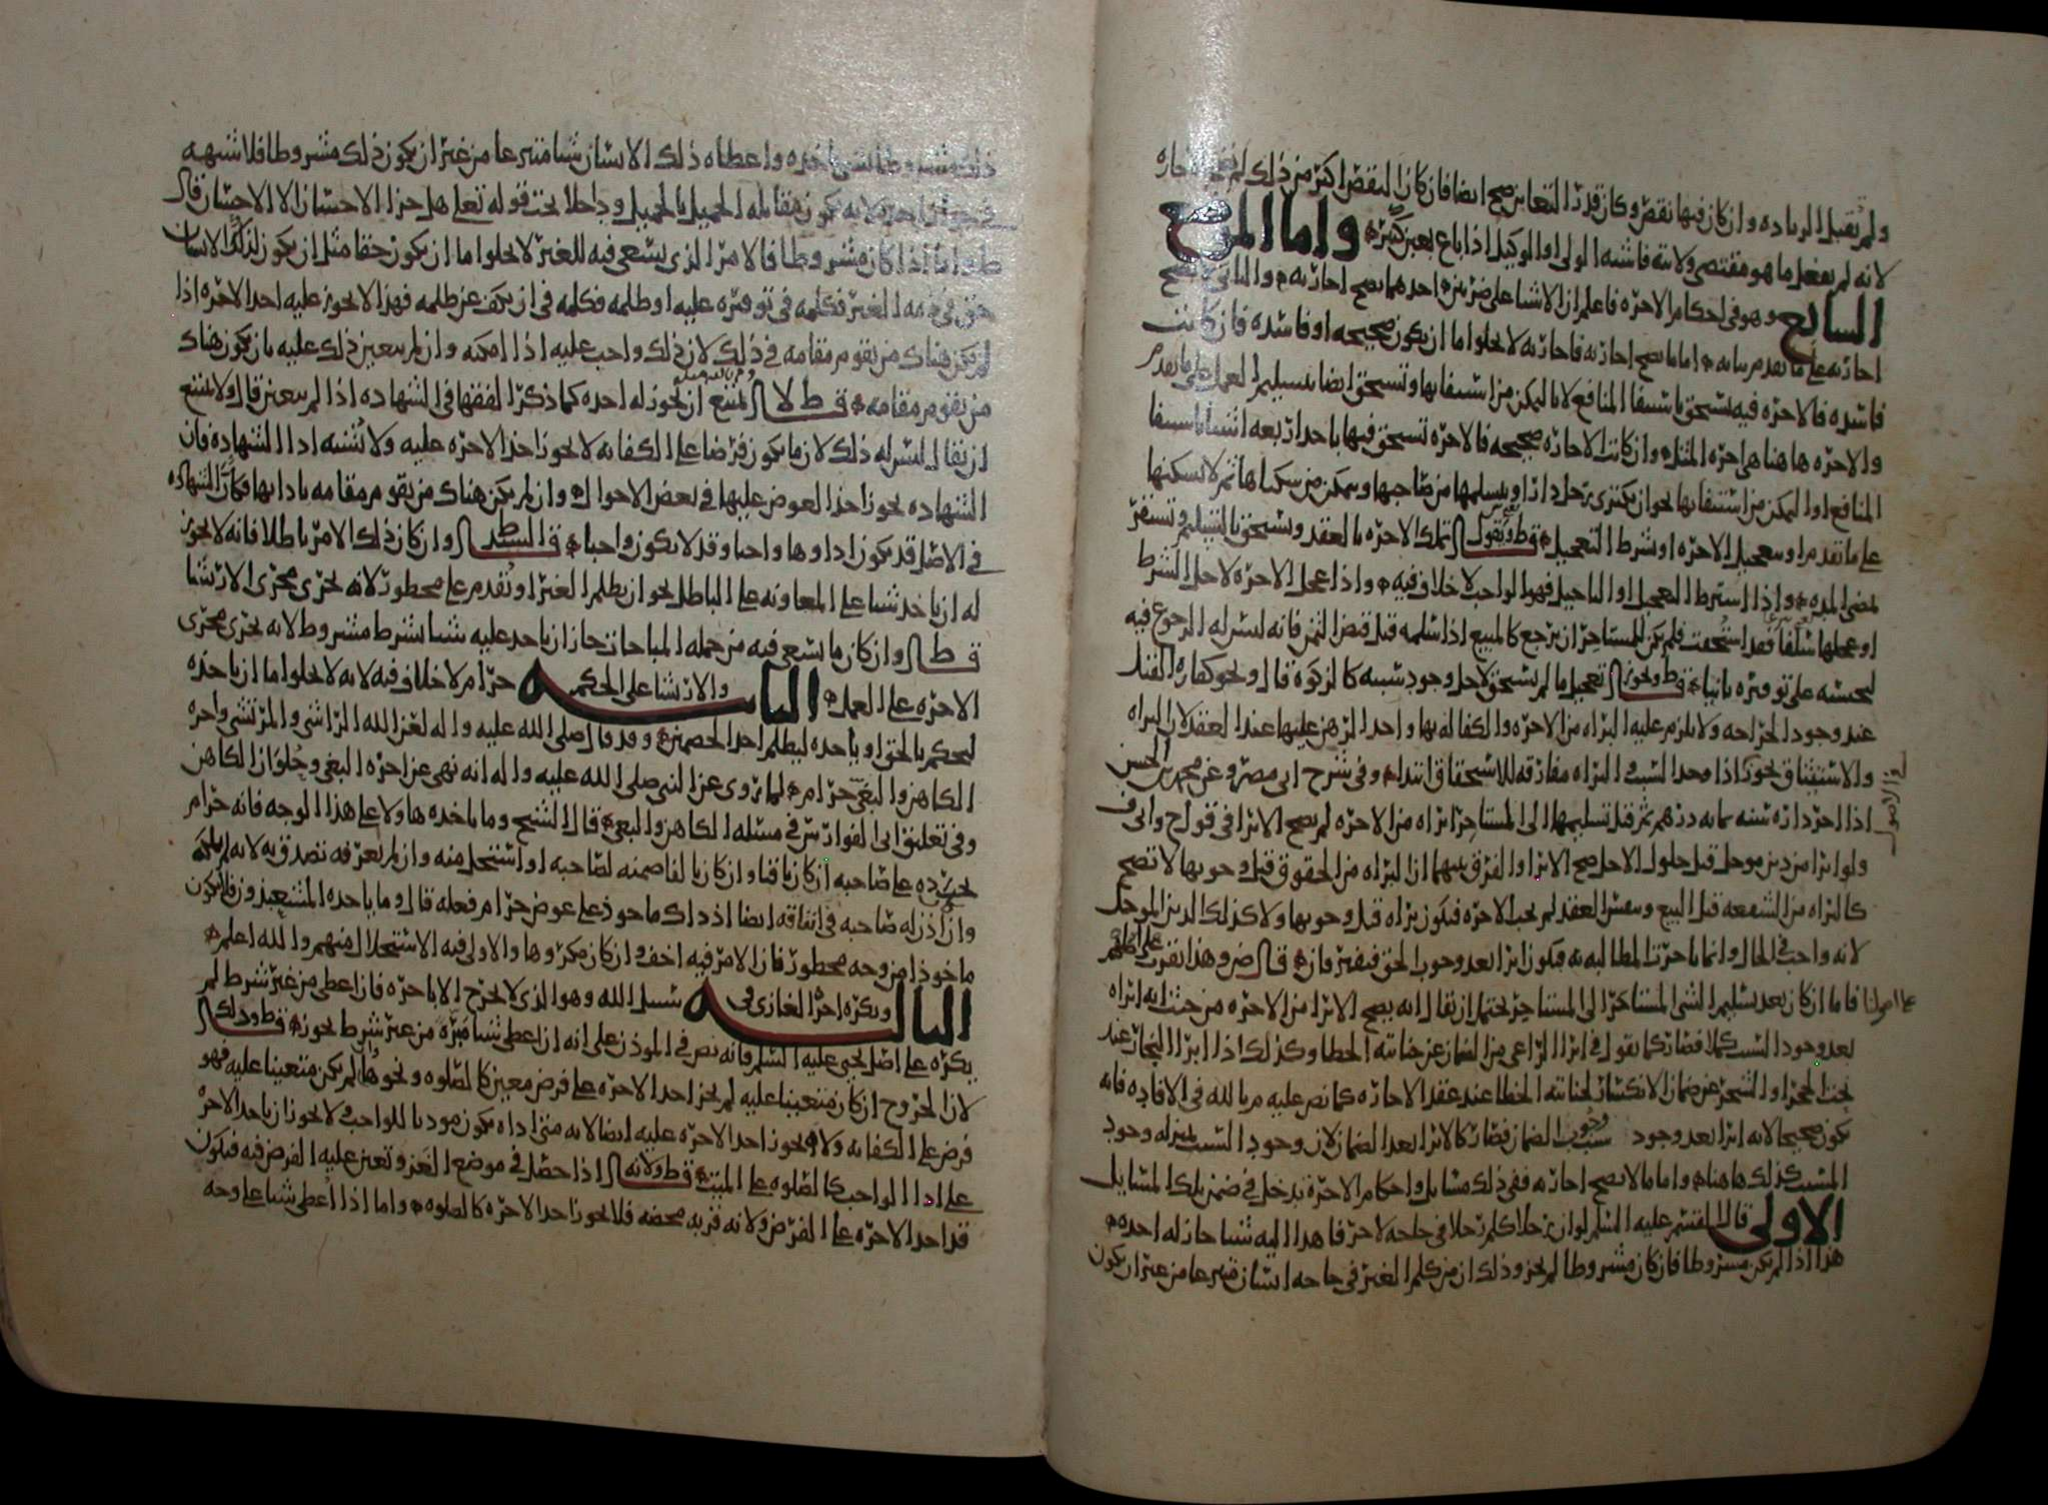 ولم يقبل الزياده وان كان فيها نقص وكان قدر التغابن صح ايضا فان كان النقص اكثر من ذلك لم
لانه لم يفعل ما هو مقتضى ولايته فاشبه الولي او الوكيل اذا باع بغبن كثير واما الموضع
السابع وهو في احكام الاجره فاعلم ان الاشيا على ضربين احدهما يصح اجارته والثاني لا يصح
اجارته على ما تقدم بيانه اما ما يصح اجارته فاجارته لا تخلوا اما ان يكون صحيحه او فاسده فان كانت
فاسده فالاجره فيه تستحق باستيفا المنافع لا بالتمكين من استيفائها وتستحق ايضا بتسليم العمل على ما تقدم
والاجره هاهنا هي اجره المثل وان كانت الاجاره صحيحه فالاجره تستحق فيها باحد اربعه اشيا باستيفا
المنافع او التمكين من استيفائها نحو ان يكتري رجل دارا ويتسلمها من صاحبها ويتمكن من سكناها ثم لا يسكنها
على ما تقدم او بتعجيل الاجره او شرط التعجيل قط ونقول تملك الاجره بالعقد وتستحق بالتسليم وتستقر
بمضي المده واذا اشترط التعجيل او التاجيل فهو الواجب لا خلاف فيه واذا عجل الاجره لاجل الشرط
او عجلها سلفا فقد استحقت فلم يكن للمستاجر ان يرجع كالمبيع اذا سلمه قبل قبض الثمن فانه ليس له الرجوع فيه
ليحبسه على توفيره ثانيا قط ويجوز تعجيل ما لم يستحق لاجل وجود سببه كالزكوه قال ونحو كفاره القتل
عند وجود الجراحه ولا يلزم عليه البراه من الاجره والكفاله بها واخذ الرهن عليها عند العقد لان البراه
والاستيثاق يجوز اذا وجد السبب والبراه مفارقه للاستحقاق ابتدا وفي شرح ابي مضر وعن محمد بن الحسن
اذا اجر داره سنه بمائه درهم ثم قبل تسليمها الى المستاجر ابراه من الاجره لم يصح الابرا في قول ح وابي ف
ولو ابرا من دين موجل قبل حلول الاجل صح الابرا والفرق بينهما ان البراه من الحقوق قبل وجوبها لا تصح
كالبراه من الشفعه قبل البيع وبنفس العقد لم تجب الاجره فيكون براه قبل وجوبها ولا كذلك الدين الموجل
لانه واجب في الحال وانما تاخرت المطالبه به فيكون ابرا بعد وجوب الحق فيفترقان قال ض وهذا يقرب على اصلهم
على اصولنا فاما ان كان بعد تسليم الشي المستاجر الى المستاجر يحتمل ان يقال انه يصح الابرا من الاجره من حيث انه ابراه
بعد وجود السبب كملا فصار كما نقول في ابرا الراعي من الضمان عن جنايته الخطا وكذلك اذا ابرا النجار عند
نحت الحجر او الشجر عن ضمان الانكسار لجنايته الخطا عند عقد الاجاره كما نص عليه م بالله في الافاده فانه
يكون صحيحا لانه ابرا بعد وجود سبب وجوب الضمان فصار كالابرا بعد الضمان لان وجود السبب بمنزله وجود
المسبب كذلك هاهنا واما ما لا تصح اجارته ففي ذلك مسايل واحكام الاجره تدخل في ضمن تلك المسايل
الاولى قال القسم عليه السلم لو ان رجلا كلم رجلا في حاجه لاخر فاهدا اليه شيا جاز له اخذه
هذا اذا لم يكن مشروطا فان كان مشروطا لم يجز وذلك ان من كلم الغير في حاجه انسان متبرعا من غير ان يكون
ذلك مشروطا بشي ياخذه واعطاه ذلك الانسان شيا متبرعا من غير ان يكون ذلك مشروطا فلا شبهه
في جواز اخذه لانه يكون مقابله الجميل بالجميل وداخلا تحت قوله تعلى هل جزا الاحسان الا الاحسان قال
ط واما اذا كان مشروطا فالامر الذي يسعى فيه للغير لا يخلوا اما ان يكون حقا مثل ان يكون لذلك الانسان
حق في ذمه الغير فكلمه في توفيره عليه او ظلمه فكلمه في ان يكف عن ظلمه فهذا لا يجوز عليه اخذ الاجره اذا
لم يكن هناك من يقوم مقامه في ذلك لان ذلك واجب عليه اذا امكنه وان لم يتعين ذلك عليه بان يكون هناك
من يقوم مقامه قط لا يمتنع ان يجوز له اخذه كما ذكر الفقها في الشهاده اذا لم يتعين قال ولا يمتنع
ان يقال ليس له ذلك لان ما يكون فرضا على الكفايه لا يجوز اخذ الاجره عليه ولا تشبه ادا الشهاده فان
الشهاده يجوز اخذ العوض عليها في بعض الاحوال وان لم يكن هناك من يقوم مقامه بادايها فكان الشهاده
في الاصل قد يكون اداوها واجبا وقد لا يكون واجبا قال السيد ط وان كان ذلك الامر باطلا فانه لا يجوز
له ان ياخذ شيا على المعاونه على الباطل نحو ان يظلم الغير او يقدم على محظور لانه يجري مجرى الارتشا
قط وان كان ما يسعى فيه من جمله المباحات جاز ان ياخذ عليه شيا بشرط مشروط لانه يجري مجرى
الاجره على العمل الثانيه والارتشا على الحكم حرام لا خلاف فيه لانه لا يخلوا اما ان ياخذه
ليحكم بالحق او ياخذه ليظلم احد الخصمين وقد قال صلى الله عليه واله لعن الله الراشي والمرتشي واجره
الكاهن والبغي حرام لما يروى عن النبي صلى الله عليه واله انه نهى عن اجره البغي وحلوان الكاهن
وفي تعليق ابي الفوارس في مسئله الكاهن والبغي قال الشيخ وما ياخذه هاولا على هذا الوجه فانه حرام
يجب رده على صاحبه ان كان باقيا وان كان تالفا ضمنه لصاحبه او استحل منه وان لم يعرفه تصدق به لانه لم يملكه
وان اذن له صاحبه في انفاقه ايضا اذ ذاك ماخوذ على عوض حرام فعله قال وما ياخذه المشعبذون فلا يكون
ماخوذا من وجه محظور فان الامر فيه اخف وان كان مكروها والاولى فيه الاستحلال منهم والله اعلم
الثالثه ويكره اجره الغازي في سبيل الله وهو الذي لا يخرج الا باجره فان اعطي من غير شرط لم
يكره على اصل يحيى عليه السلم فانه نص في الموذن على انه ان اعطي شيا مبره من غير شرط يجوز قط وذلك
لان الخروج ان كان متعينا عليه لم يجز اخذ الاجره على فرض معين كالصلوه ونحوها وان لم يكن متعينا عليه فهو
فرض على الكفايه ولا يجوز اخذ الاجره عليه ايضا لانه متى اداه يكون موديا للواجب ولا يجوز ان ياخذ الاجره
على ادا الواجب كالصلوه على الميت قط ولانه اذا حصل في موضع الغزو تعين عليه الفرض فيه فيكون
قد اخذ الاجره على الفرض ولانه قربه محضه فلا يجوز اخذ الاجره كالصلوه واما اذا اعطي شيا على وجه